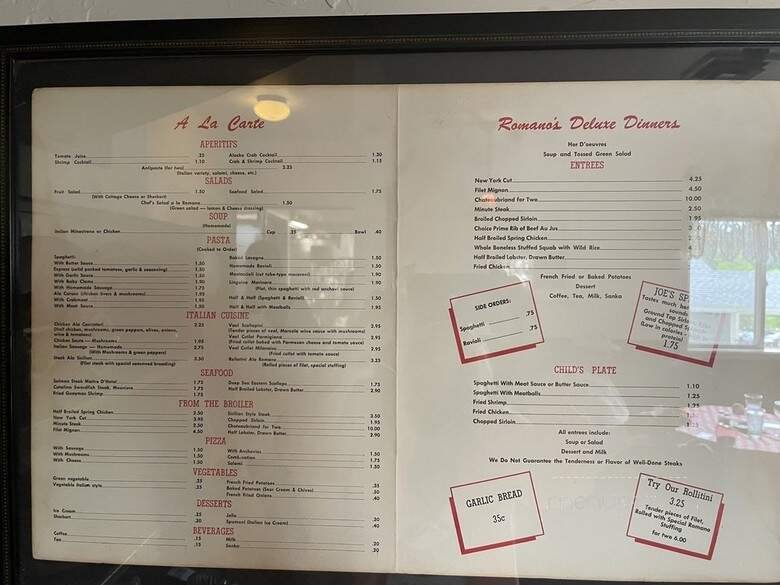 A La Carte
APERITIFS
Tomato Juice .25
Shrimp Cocktail 1.10
Alaska Crab Cocktail 1.30
Crab & Shrimp Cocktail 1.15
Antipasto (for two) 3.25
(Italian variety, salami, cheese, etc.)
SALADS
Fruit Salad 1.50
(With Cottage Cheese or Sherbert)
Seafood Salad 1.75
Chef's Salad a la Romano 1.50
(Green salad — lemon & Cheese dressing)
SOUP
(Homemade)
Italian Minestrone or Chicken Cup .25 Bowl .40
PASTA
(Cooked to Order)
Spaghetti
With Butter Sauce
With Garlic Sauce
With Baby Clams
With Homemade Sausage
With Crabmeat
With Meat Sauce
Baked Lasagna 1.50
Homemade Ravioli
Mostaccioli (cut tube-type macaroni)
Linguine Marinara 1.90
(Flat, thin spaghetti with red anchovi sauce)
Half & Half (Spaghetti & Ravioli) 1.50
Half & Half with Meatballs 1.95
ITALIAN CUISINE
Chicken Ala Cacciatori 2.25
(Half chicken, mushrooms, green peppers, olives, onions,
wine & tomatoes)
Chicken Saute — Mushrooms
Italian Sausage — Homemade 2.75
(With Mushrooms & green peppers)
Steak Ala Sicilian 3.50
(Flat steak with special seasoned breading)
Veal Scallopini 2.95
(Tender pieces of veal, Marsala wine sauce with mushrooms)
Veal Cutlet Parmigiana 2.95
(Fried cutlet baked with Parmesan cheese and tomato sauce)
Veal Cutlet Milanaise 2.95
(Fried cutlet with tomato sauce)
Rollatini Ala Romano 3.25
(Rolled pieces of filet, special stuffing)
SEAFOOD
Salmon Steak Maitre D'Hotel 1.75
Catalina Swordfish Steak, Meuniere 1.75
Fried Guaymas Shrimp 1.75
Deep Sea Eastern Scallops 1.75
Half Broiled Lobster, Drawn Butter 2.90
FROM THE BROILER
Half Broiled Spring Chicken 2.50
New York Cut 3.95
Minute Steak 2.50
Filet Mignon 4.50
Sicilian Style Steak 3.50
Chopped Sirloin 1.95
Chateaubriand for Two 10.00
Half Lobster, Drawn Butter 2.90
PIZZA
With Sausage 1.50
With Mushrooms 1.50
With Cheese 1.50
With Anchovies 1.50
Combination 1.75
Salami 1.50
VEGETABLES
Green vegetable .25
Vegetable Italian style .35
French Fried Potatoes .35
Baked Potatoes (Sour Cream & Chives) .50
French Fried Onions .40
DESSERTS
Ice Cream .25
Sherbert .30
Jello .25
Spumoni (Italian Ice Cream) .40
BEVERAGES
Coffee .15
Tea .15
Milk .20
Sanka .20
Romano's Deluxe Dinners
Hor D'oeuvres
Soup and Tossed Green Salad
ENTREES
New York Cut 4.25
Filet Mignon 4.50
Chateaubriand for Two 10.00
Minute Steak 2.50
Broiled Chopped Sirloin 1.95
Choice Prime Rib of Beef Au Jus
Half Broiled Spring Chicken
Whole Boneless Stuffed Squab with Wild Rice
Half Broiled Lobster, Drawn Butter
Fried Chicken
French Fried or Baked Potatoes
Dessert
Coffee, Tea, Milk, Sanka
SIDE ORDERS:
Spaghetti .75
Ravioli .75
JOE'S
Tastes much
Ground Top
and Chopped
(Low in calories -
protein)
1.75
CHILD'S PLATE
Spaghetti With Meat Sauce or Butter Sauce 1.10
Spaghetti With Meatballs 1.25
Fried Shrimp 1.25
Fried Chicken
Chopped Sirloin
All entrees include:
Soup or Salad
Dessert and Milk
We Do Not Guarantee the Tenderness or Flavor of Well-Done Steaks
GARLIC BREAD
35c
Try Our Rollitini
3.25
Tender pieces of Filet,
Rolled with Special Romano
Stuffing
for two 6.00